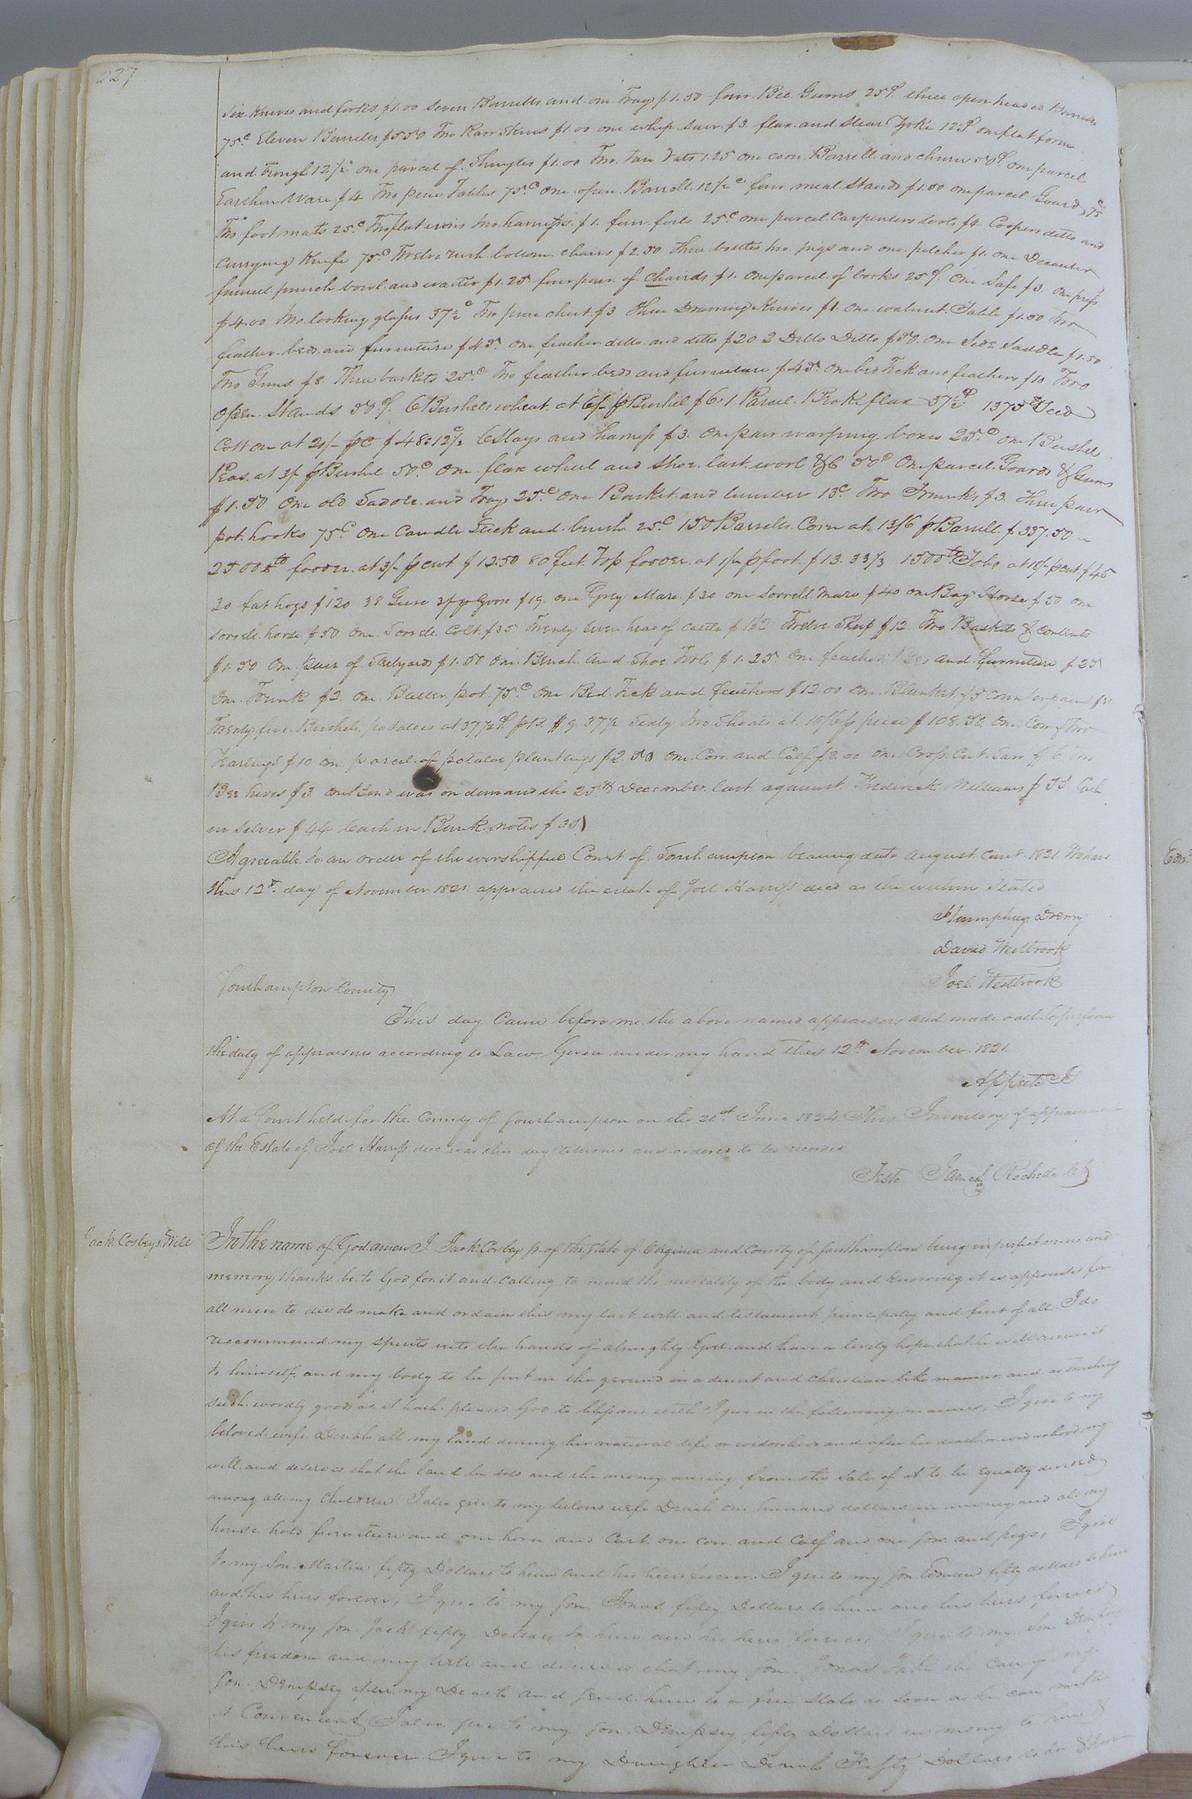 227
Six Knives and forks $1.00 Seven Barrells and one Tray $1.50 four Bee Gums 25 three open headed Barrells
75c Eleven Barrells $5.50 Two Raw Skins $1.00 one whip saw $3 flax and Steer Yoke 12 one flat form
and Trough 12½ one parcel of Shingles $1.00 Two Tan Vats 1.25 one corn Barrell and churn 50 one parcel
Earthen Ware $4 Two pine Tables 75c one open Barrell 12½c four meal Stands $1.00 one parcel Goard 75
Two foot mats 25c Two flat irons two $1. four 25c one parcel Carpenters tools $4 Coopers ditto and
Currying Knife 75c Twelve rush bottom chairs $2.50 three bottles two jugs and one pitcher $1. one Decanter
funnel punch bowl and waiter $1.25 four pair of Chairds $1. one parcel of books 25 One Safe $3 one press
$4.00 two looking glasses 37½c Two pine chest $3 three Drawing Knives $1 one walnut Table $1.50 two
feather beds and furniture $45 one feather ditto and ditto $20 2 Ditto Ditto $50 One Side Saddle $1.50
Two Guns $8 Three baskets 25c Two feather beds and furniture $45 one bed Tick and feathers $10 Two
Open Stands 50 6 Bushels wheat at 6/ p Bushel $6. 1 Parcel Broke flax 37½ 1375 Seed
Cotton at 21/ p C $48.12½ 6 Slays and harness $3. One pair warping boxes 25c one Bushel
Peas at 3/ p Bushel 50c One flax wheel and Shoe last 50 One parcel Goards & Gums
$1.50 One old Saddle and Tray 25c One Basket and lumber 13c Two Trunks $3 three pair
pot hooks 75c One Candle Stick and brush 25c 150 Barrells Corn at 13/6 p Barrell $337.50
2500 fodder at 3/ p cwt $12.50 80 feet Top fodder at 1/ p foot $13.33⅓ 1500 Tobo at p cwt $45
20 fat hogs $120 38 Geese $19 one Grey Mare $20 one Sorrell Mare $40 one Bay Horse $50 one
Sorrell horse $50 One Sorrell Colt $35 Twenty Seven head of cattle $162 Twelve Sheep $12 Two Baskets & contents
$1.50 One pair of Steelyards $1.50 One Bench and Shoe Tools $1.25 One feather Bed and furniture $25
One Trunk $2 One Butter pot 75c One Bed Tick and feathers $12.00 One Blanket
Twenty five Bushels potatoes at 37½ $9.37½ Sixty two Shoats at p piece $108.50 One Cow & Two
Yearlings $10 one parcel of potatoe plantings $2.50 One Cow and Calf $8.00 One Crop Cut Saw
Bee hives $3 one Bond was on demand the 25th December last against Frederick Williams Cash
in Silver $44 Cash in Bank notes $35
Agreeable to an order of the worshipfull Court of Southampton bearing date August Court 1821 We have
this 12th day of November 1821 appraised the estate of Joel Harriss decd as the within Stated
Humphrey Drewry
David Westbrook
Joel Westbrook
Southampton County
This day Came before me the above named appraisers and made oath to perform
the duty of appraisers according to Law. Given under my hand this 12th November 1821
At a Court held for the County of Southampton on the 21st June 1824 This Inventory & appraisement
of the Estate of Joel Harriss decd was this day returned and ordered to be recorded
Teste James Rochelle
Jack Cosbeys Will
In the name of God amen I Jack Cosbey Sr. of the State of Virginia and County of Southampton being in perfect mind and
memory thanks be to God for it and Calling to mind the mortality of the body and knowing it is appointed for
all men to die do make and ordain this my last will and testament principally and first of all. I do
recommend my spirits into the hands of almighty God and have a lively hope that he will receive it
to himself and my body to be put in the ground in a decent and Christian like manner and as touching
such wordly goods as it hath pleased God to bless me with I give in the following manner, I give to my
beloved wife Dinah all my land during her natural life or widowhood and after her death or widowhood my
will and desire is that the land be sold and the money arising from the Sale of it to be Equally divided
among all my Children I also give to my beloved wife Dinah one hundred dollars in money and all my
house hold furniture and one horse and Cart one cow and Calf and one Sow and pigs, I give
to my Son Martin fifty Dollars to him and his heirs forever. I give to my Son Edward fifty dollars to him
and his heirs forever, I give to my Son Jonas fifty Dollars to him and his heirs forever
I give to my Son Jack fifty Dollars to him and his heirs forever I give to my Son Dempsey
his freedom and my will and desire is that my Son Jonas Take the Care of my
Son Dempsey after my Death and Send him to a free State as Soon as he can make
it Convenient I also give to my Son Dempsey fifty Dollars in money to him &
his heirs forever I give to my Daughter Dinah Fifty Dollars to her & heirs